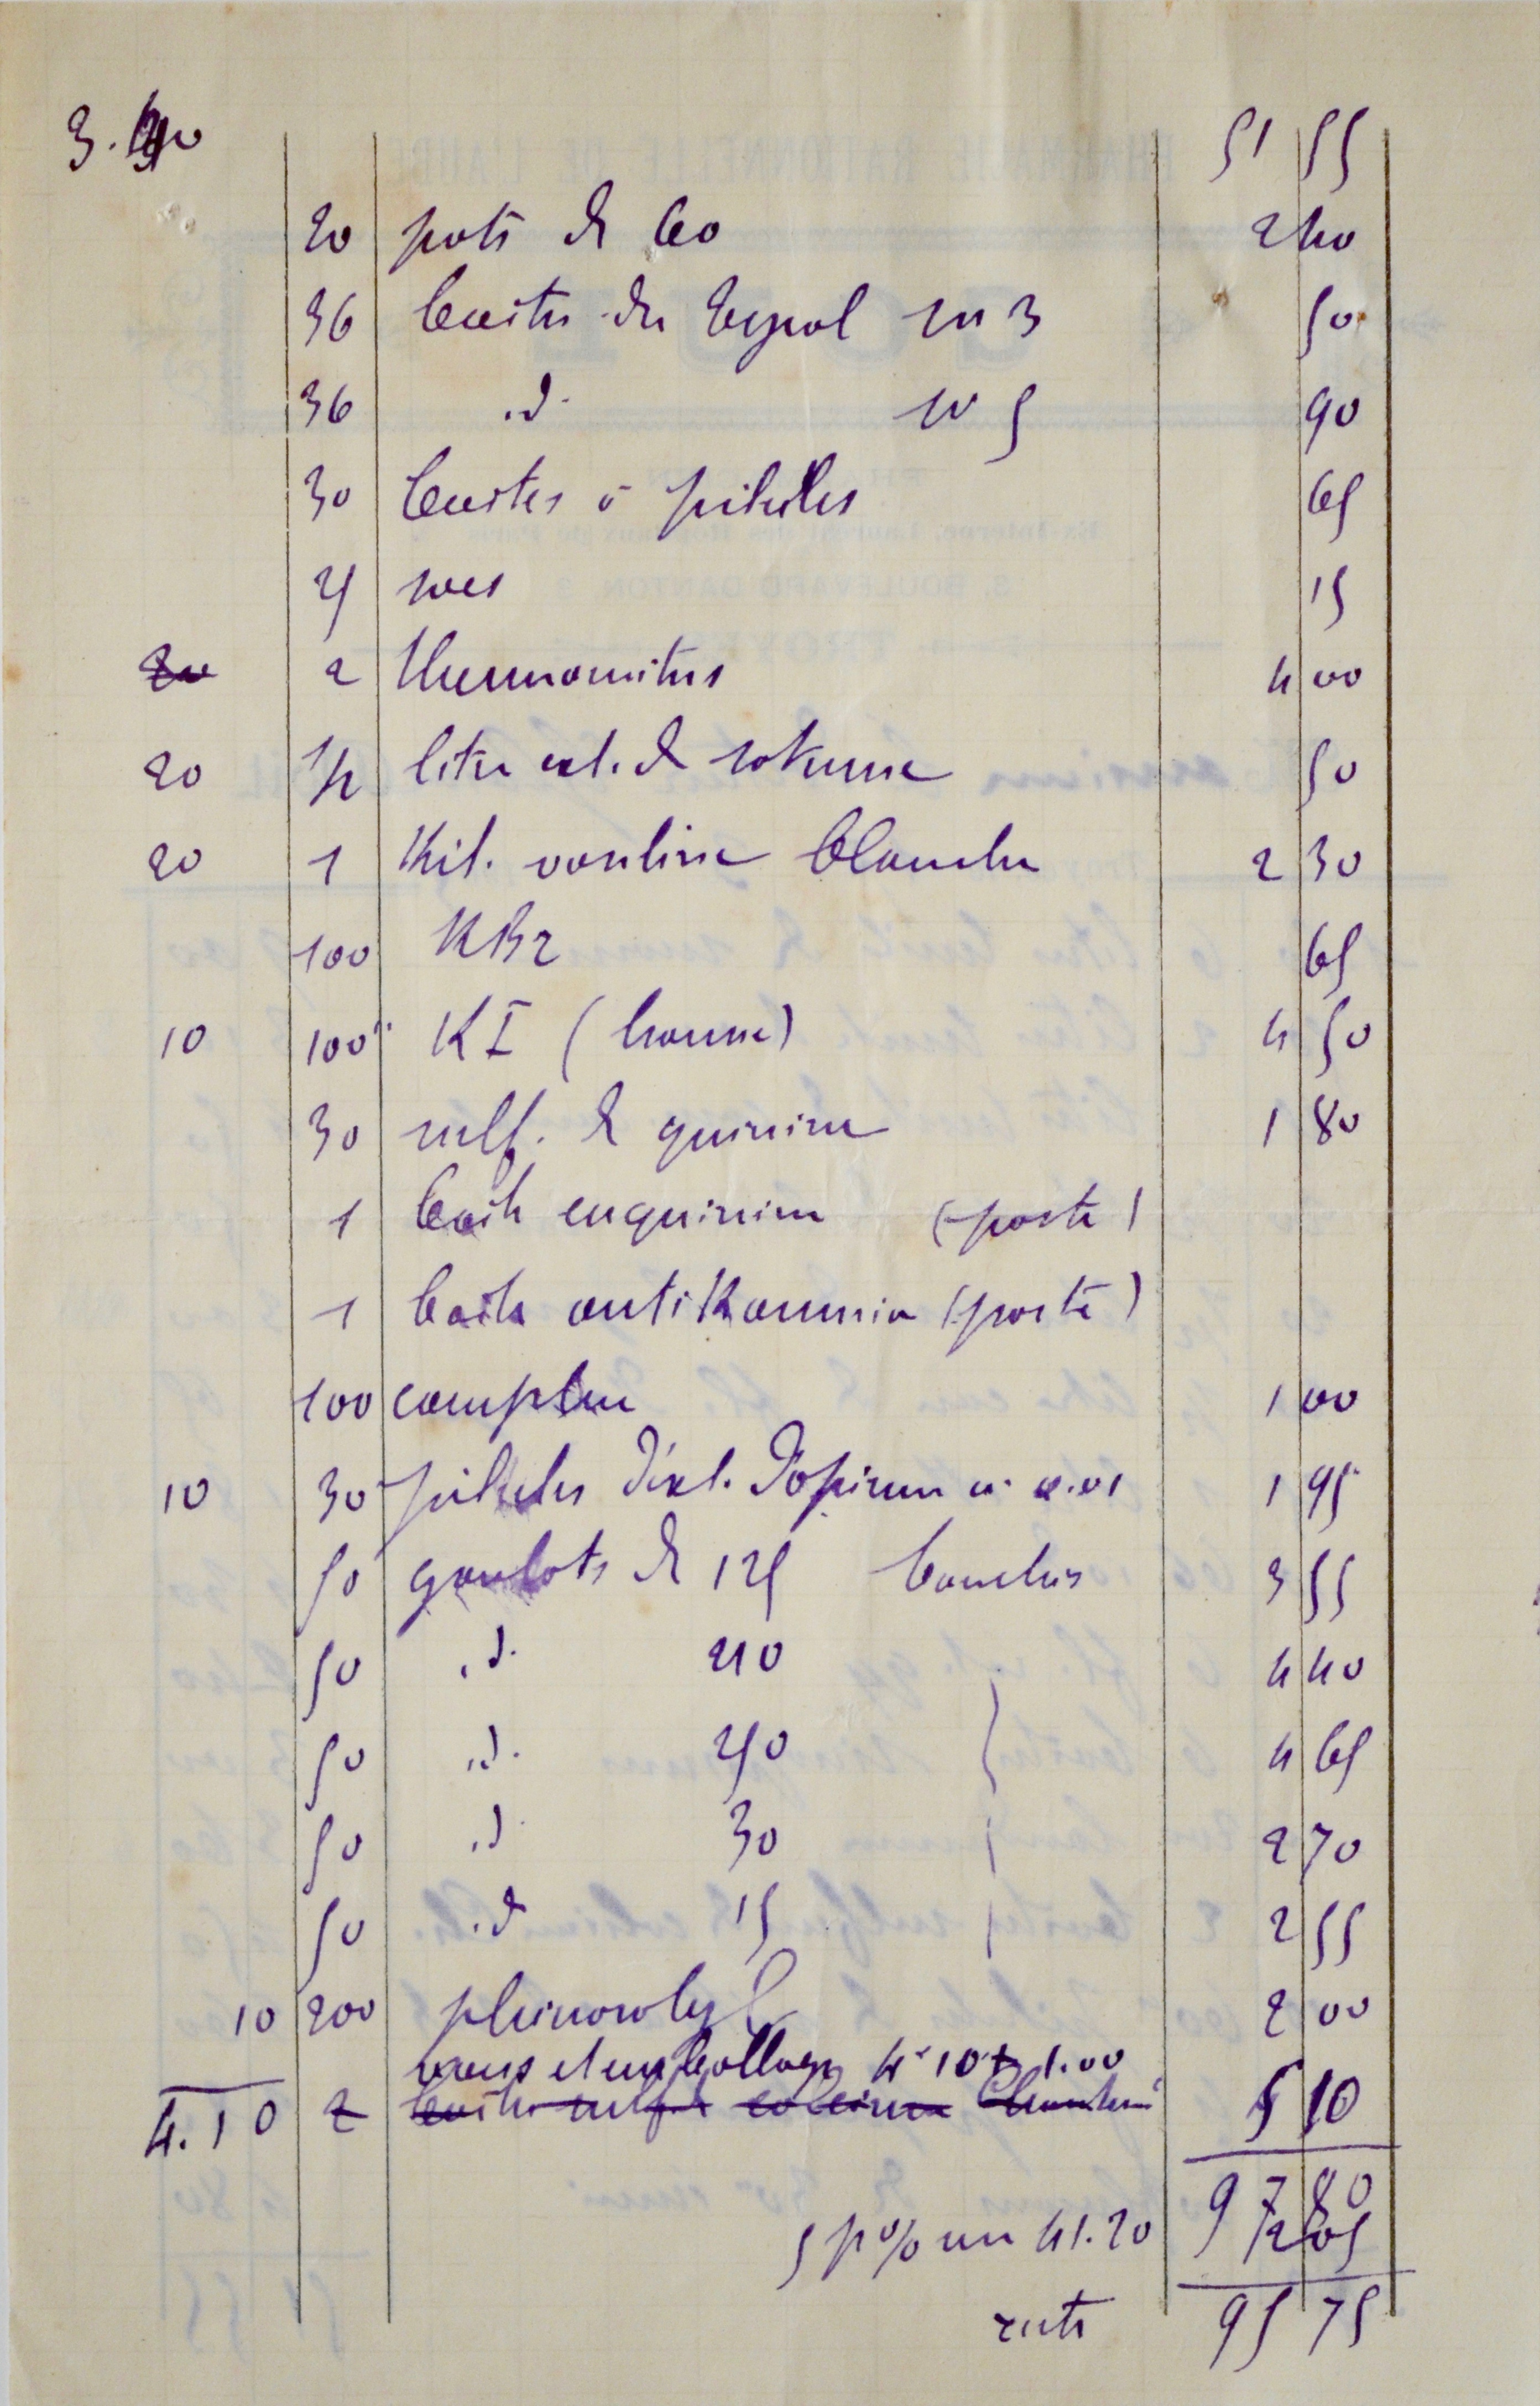 3. 51 55
20 pots de 60 2 40
36 boites de Crepol no 3 50
36 id. no 5 90
30 boites à pilules 65
25 noes 15
20 2 thermomètres 4 00
20 1/2 litre ext. de 50
20 1 Kil. vaseline blanche 2 30
100 KBr 65
10 100 KI (bonne) 4 50
30 sulf. de quinine 1 80
1 boite euquinine (poste)
1 boite antikamnia (poste)
100 camphre 1 00
10 30 pilules d'ext. d'opium à 0.01 1 95
50 goulots de 125 bouchés 3 55
50 id. 210 4 40
50 id. 250 4 65
50 id. 30 2 70
50 id 15 2 55
10 200 phénosalyl 2 00
vases et emballage 4.10 + 1.00 5 10
4.10 2 boites sulf. Chanteaud
97 80
5 p % sur 41.20 2 05
reste 95 75